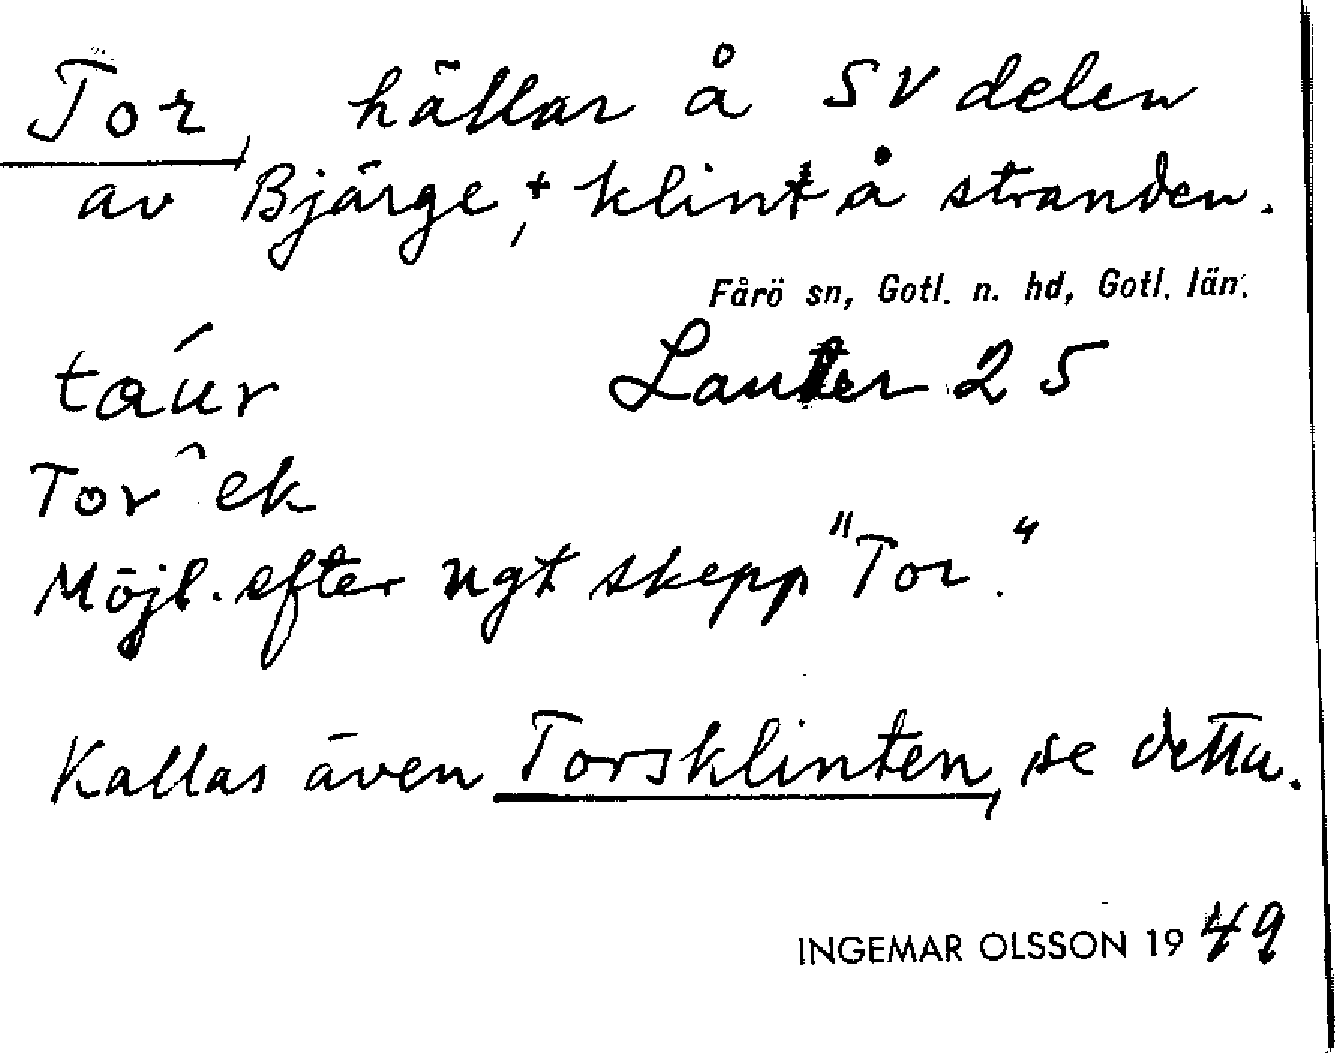 Tor, hällar å SV delen
av Bjärge, + klint å stranden.
Fårö sn, Gotl. n. hd, Gotl. län.
táur Lauter 25
Tor^ek
Möjl. efter ngt skepp "Tor".
Kallas även Torsklinten, se detta.
INGEMAR OLSSON 1949